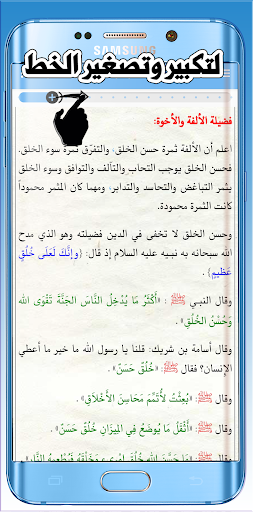 SAMSUNG
لتكبير وتصغير الخط
فضيلة الألفة والأخوة:
اعلم أن الألفة ثمرة حسن الخلق، والتفرّق ثمرة سوء الخلق.
فحسن الخلق يوجب التحاب والتآلف والتوافق وسوء الخلق
يثمر التباغض والتحاسد والتدابر، ومهما كان المثمر محموداً
كانت الثمرة محمودة.
وحسن الخلق لا تخفى في الدين فضيلته وهو الذي مدح
الله سبحانه به نبيه عليه السلام إذ قال: {وإنَّكَ لَعَلَى خُلُقٍ
عَظِيمٍ} .
وقال النبي ﷺ : «أَكْثَرُ مَا يُدْخِلُ النَّاسَ الجَنَّةَ تَقْوَى اللهِ
وَحُسْنُ الخُلُقِ» .
وقال أسامة بن شريك: قلنا يا رسول الله ما خير ما أعطي
الإنسان؟ فقال ﷺ: «خُلُقٌ حَسَنٌ» .
وقال ﷺ: «بُعِثْتُ لأُتَمِّمَ مَحَاسِنَ الأَخْلَاقِ» .
وقال ﷺ: «أَثْقَلُ مَا يُوضَعُ فِي المِيزَانِ خُلُقٌ حَسَنٌ» .
وقال ﷺ: «مَا حَسَّنَ اللهُ خَلْقَ امرىء وَخُلُقَهُ فَيُطْعِمَهُ النَّارَ»